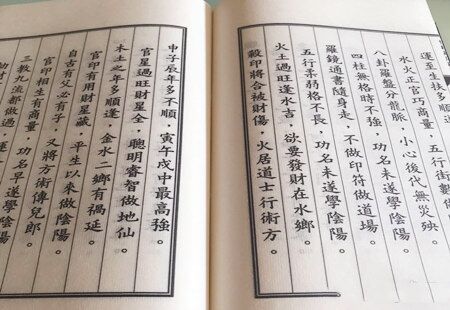 運至生扶多順　五行街數做
水火正官巧商量。
八卦羅盤分龍脈，小心後代無災殃。
四柱無格時不強，功名未遂學陰陽。
羅鏡通書隨身走，不做印符做道場。
五行柔弱格不長，功名未遂學陰陽。
火土過旺逢水吉，欲要發財在水鄉。
穀印將合被財傷，火居道士行術方。
申子辰年多不順，寅午戌中最高強。
官星過旺財星全，聰明睿智做地仙。
未土之年多順逢，金水二鄉有禍延。
官印有用財星藏，平生以來做陰陽。
自古有父必有子，又將方術傳兒郎。
官印相生有商量，功名早遂學陰陽。
三教九流都做過，